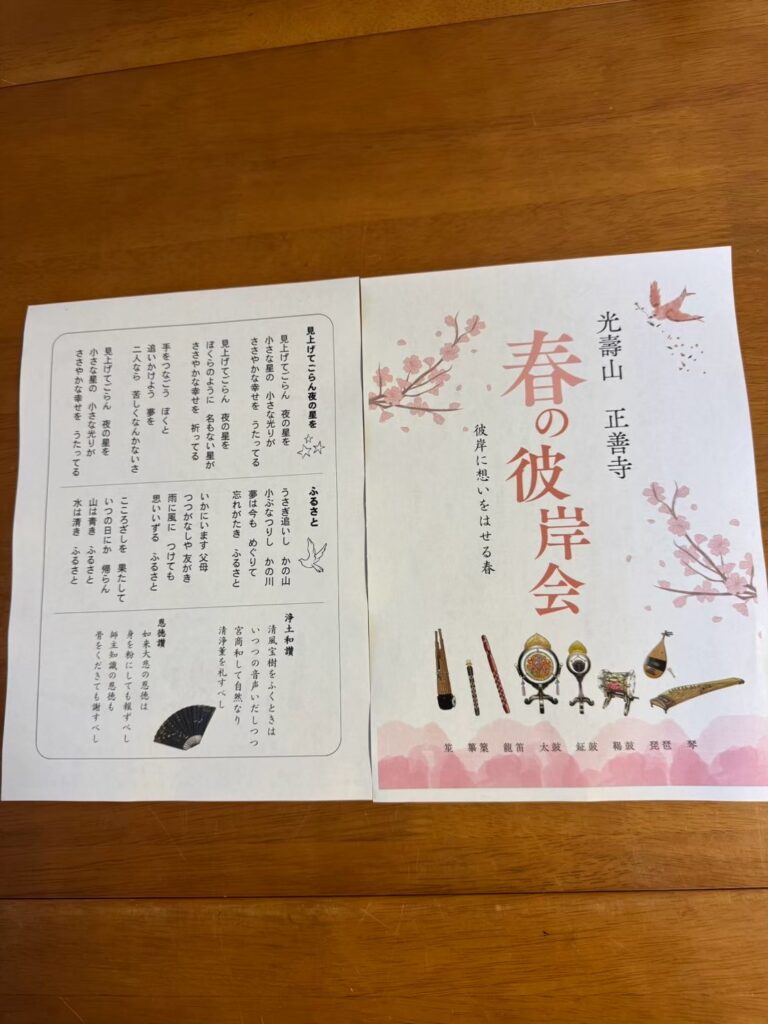 光壽山　正善寺
春の彼岸会
彼岸に想いをはせる春
笙　篳篥　龍笛　太鼓　鉦鼓　鞨鼓　琵琶　琴
見上げてごらん夜の星を
見上げてごらん　夜の星を
小さな星の　小さな光りが
ささやかな幸せを　うたってる
見上げてごらん　夜の星を
ぼくらのように　名もない星が
ささやかな幸せを　祈ってる
手をつなごう　ぼくと
追いかけよう　夢を
二人なら　苦しくなんかないさ
見上げてごらん　夜の星を
小さな星の　小さな光りが
ささやかな幸せを　うたってる
ふるさと
うさぎ追いし　かの山
小ぶなつりし　かの川
夢は今も　めぐりて
忘れがたき　ふるさと
いかにいます 父母
つつがなしや 友がき
雨に風に　つけても
思いいずる　ふるさと
こころざしを　果たして
いつの日にか　帰らん
山は青き　ふるさと
水は清き　ふるさと
浄土和讃
清風宝樹をふくときは
いつつの音声いだしつつ
宮商和して自然なり
清浄薫を礼すべし
恩徳讃
如来大悲の恩徳は
身を粉にしても報ずべし
師主知識の恩徳も
骨をくだきても謝すべし